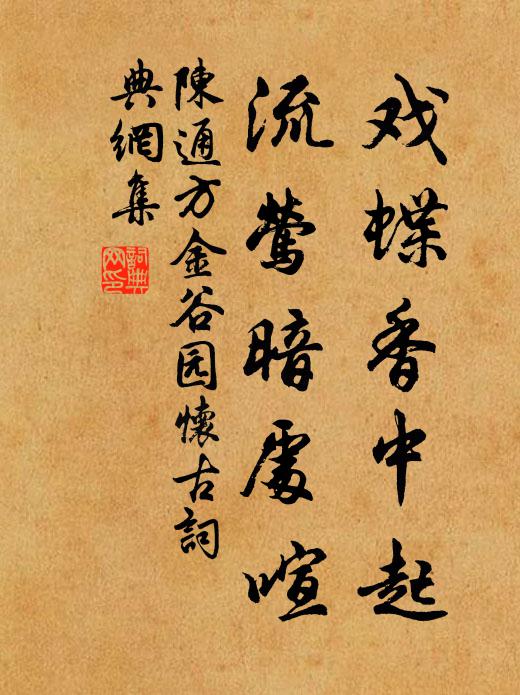 戏蝶香中起
流莺暗處喧
陳通方金谷园懷古詞
典網集
詞典
网印